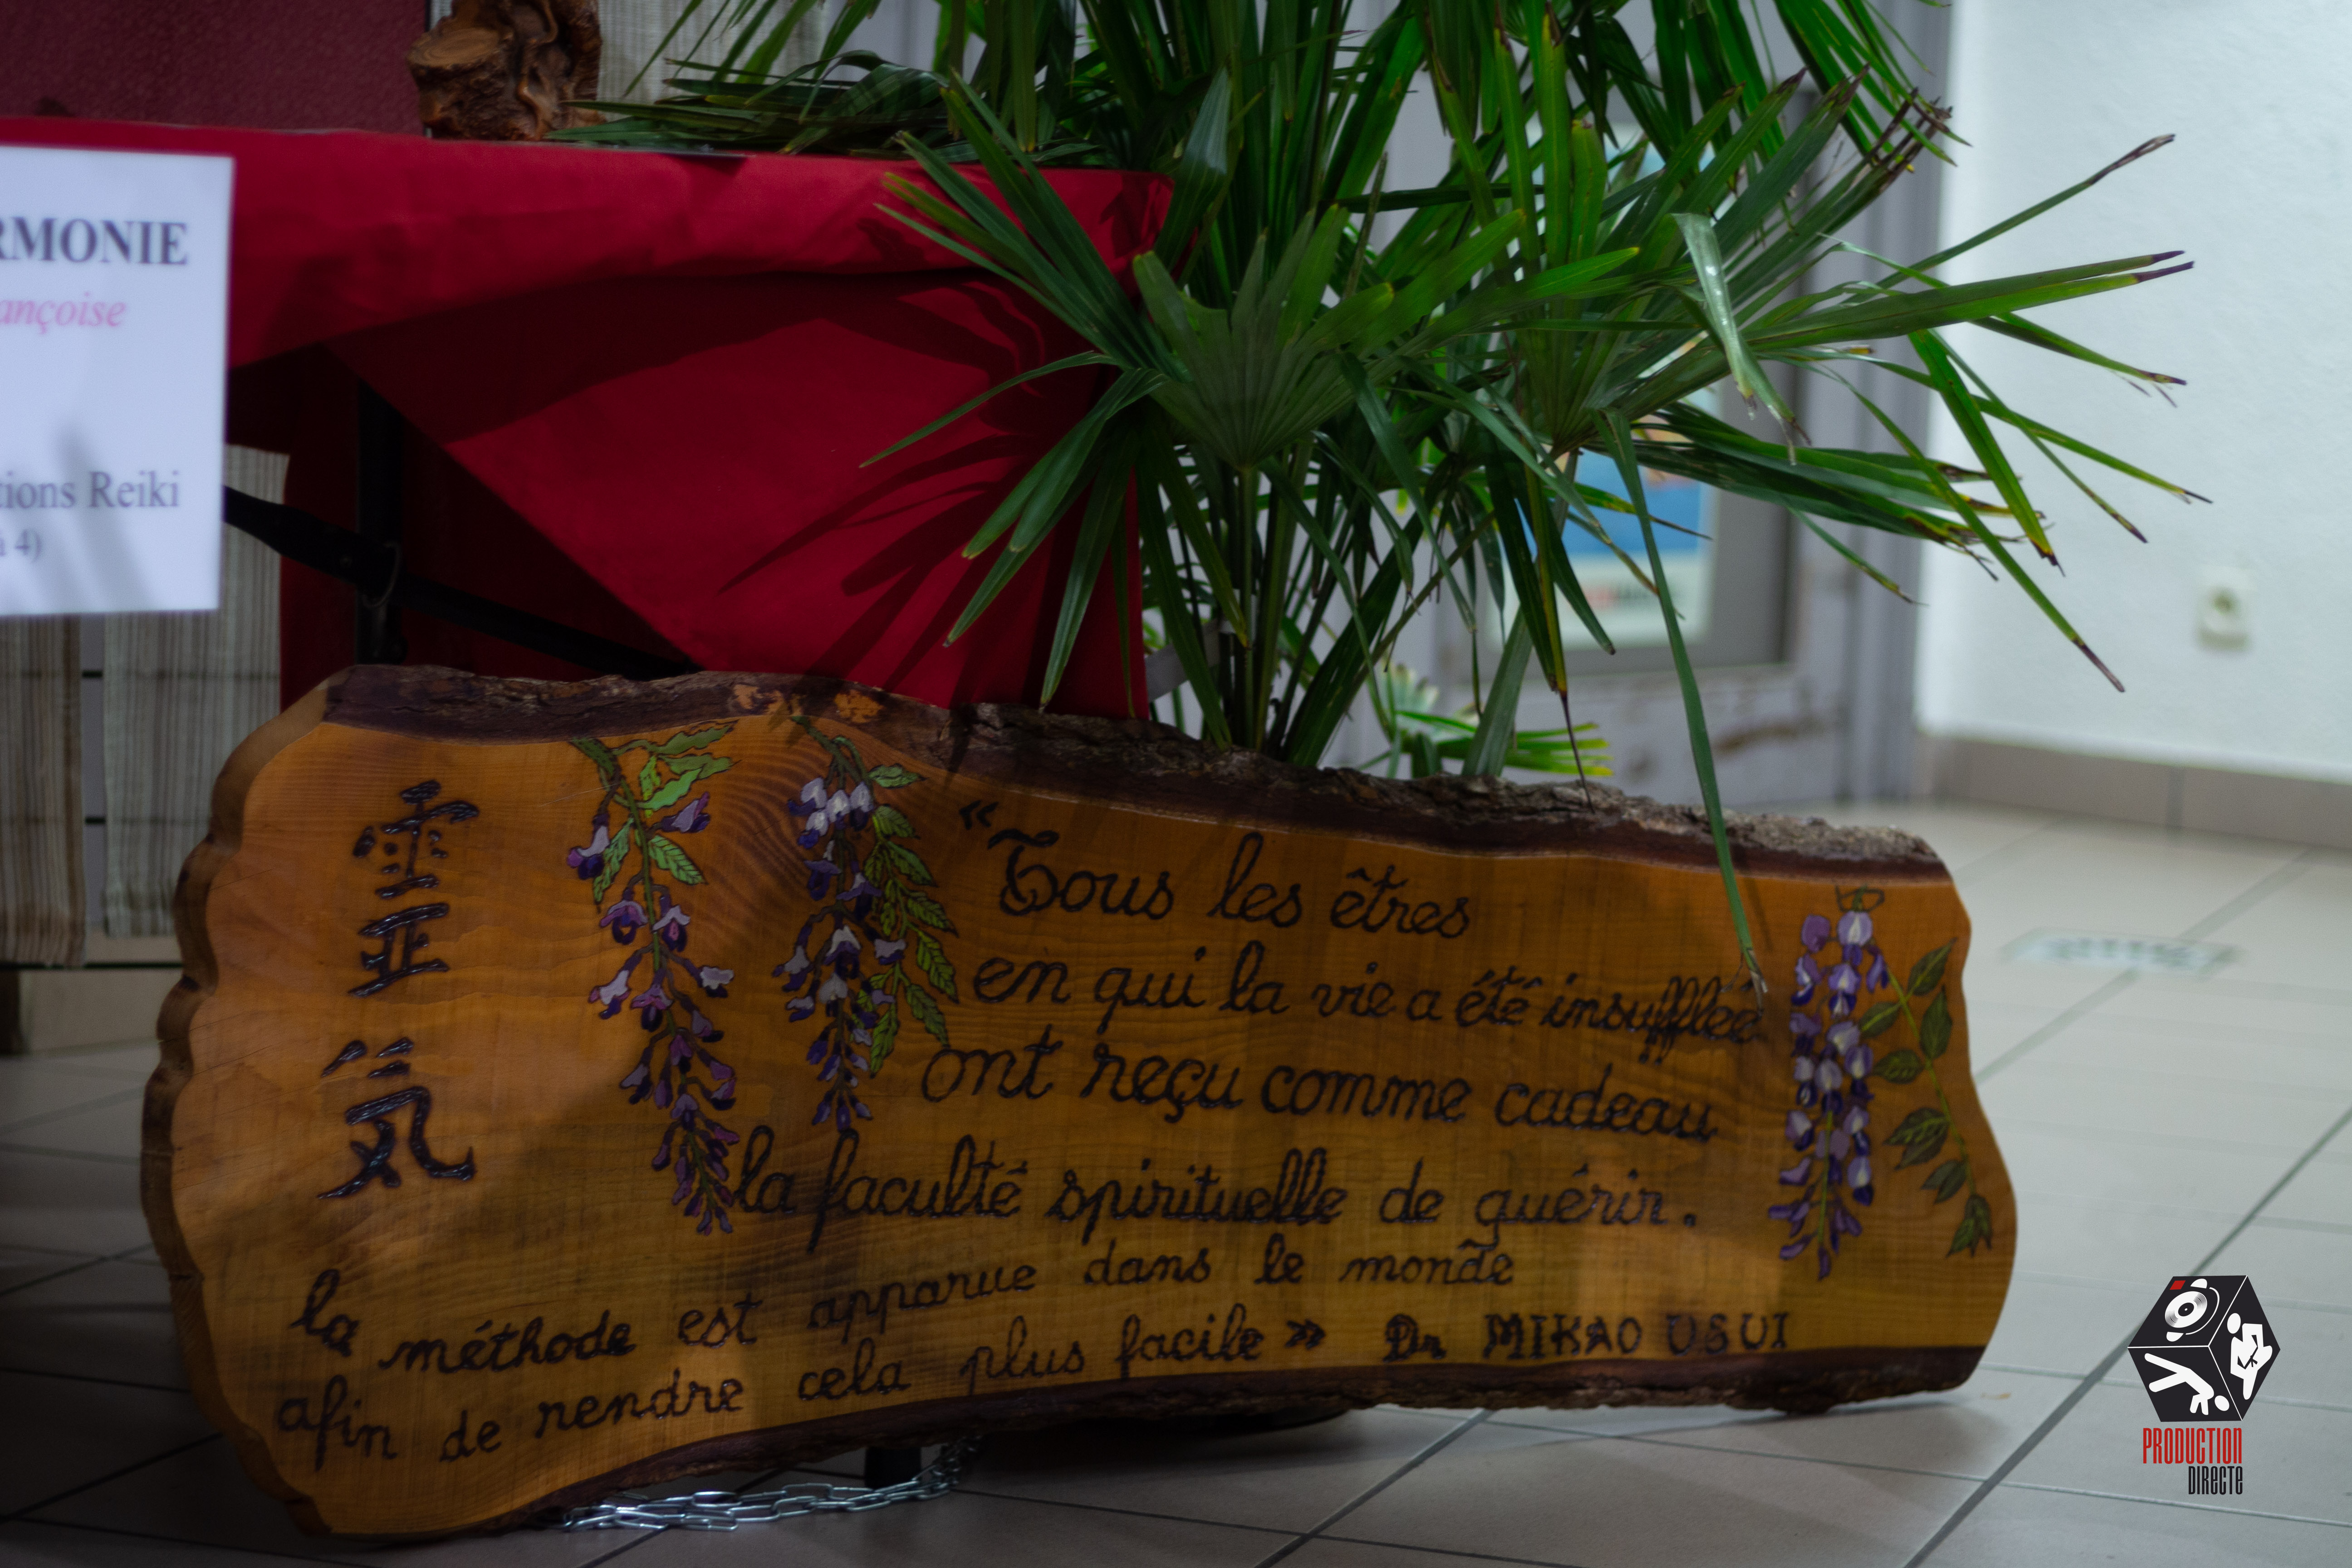 RMONIE
ançoise
tions Reiki
à 4)
霊
亜
気
« Tous les êtres
en qui la vie a été insufflée
ont reçu comme cadeau
la faculté spirituelle de guérir.
la méthode est apparue dans le monde
afin de rendre cela plus facile » Dr MIKAO USUI
PRODUCTION
DIRECTE